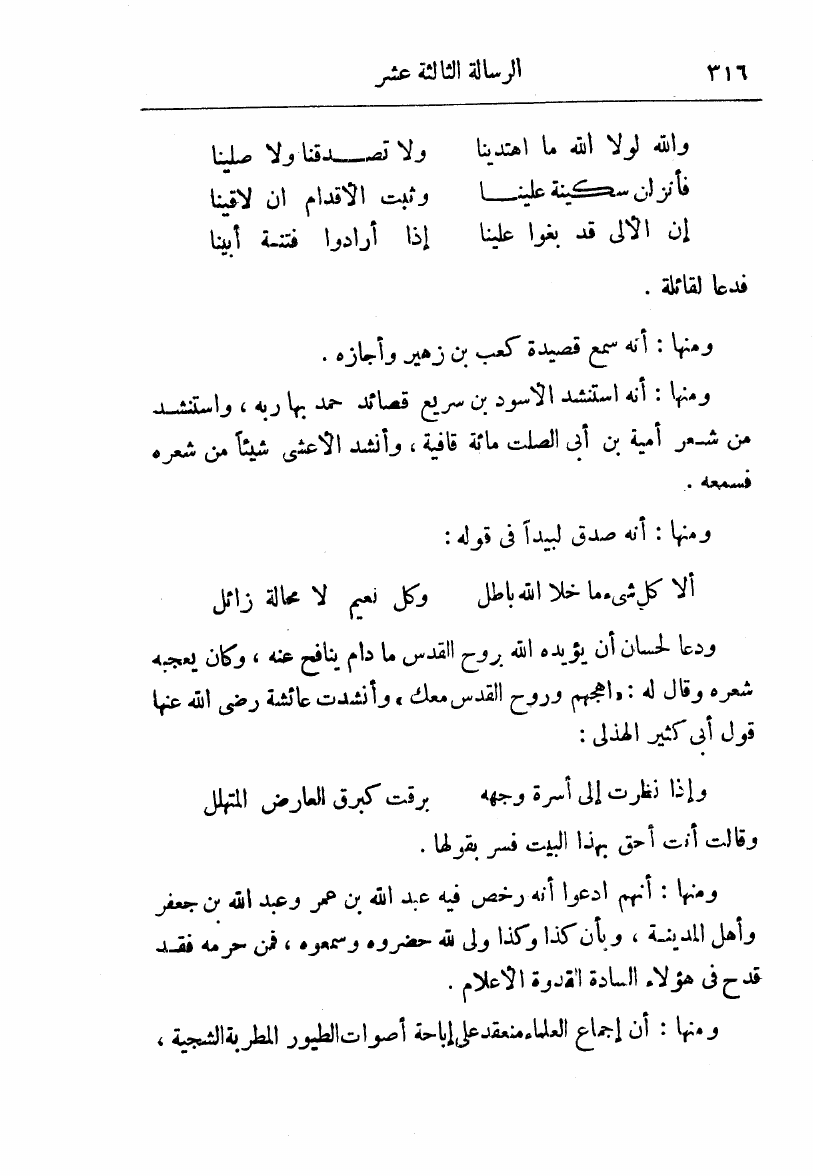 ٣١٦ الرسالة الثالثة عشر
والله لولا الله ما اهتدينا ولا تصـــدقنا ولا صلينا
فأنزلن سكينة علينـــا وثبت الأقدام ان لاقينا
إن الألى قد بغوا علينا إذا أرادوا فتنـة أبينا
فدعا لقائلة .
ومنها : أنه سمع قصيدة كعب بن زهير وأجازه .
ومنها : أنه استنشد الأسود بن سريع قصائد حمد بها ربه ، واستنشـد
من شـعر أمية بن أبى الصلت مائة قافية ، وأنشد الأعشى شيئاً من شعره
فسمعه .
ومنها : أنه صدق لبيداً فى قوله :
ألا كل شىء ما خلا الله باطل وكل نعيم لا محالة زائل
ودعا لحسان أن يؤيده الله بروح القدس ما دام ينافح عنه ، وكان يعجبه
شعره وقال له : «اهجهم وروح القدس معك» وأنشدت عائشة رضى الله عنها
قول أبى كثير الهذلى :
وإذا نظرت إلى أسرة وجهه برقت كبرق العارض المتهلل
وقالت أنت أحق بهذا البيت فسر بقولها .
ومنها : أنهم ادعوا أنه رخص فيه عبد الله بن عمر وعبد الله بن جعفر
وأهل المدينـة ، وبأن كذا وكذا ولى لله حضروه وسمعوه ، فمن حرمه فقـد
قدح فى هؤلاء السادة القدوة الأعلام .
ومنها : أن إجماع العلماء منعقد على إباحة أصوات الطيور المطربة الشجية ،